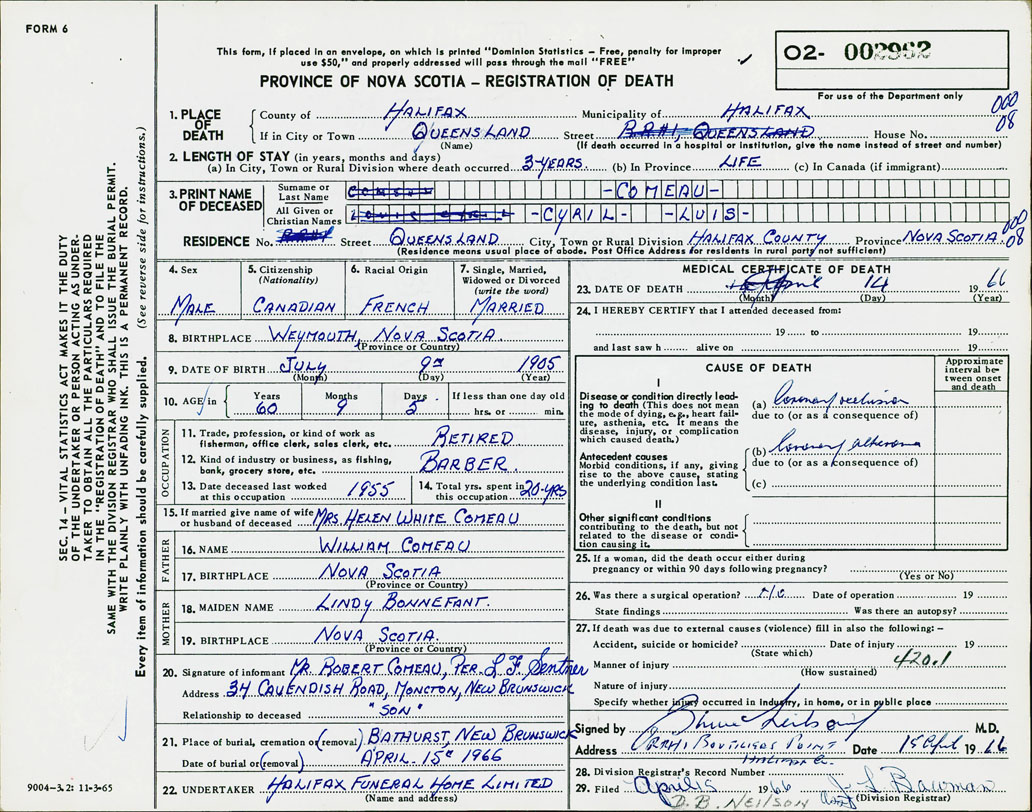 FORM 6
This form, if placed in an envelope, on which is printed "Dominion Statistics – Free, penalty for improper
use $50," and properly addressed will pass through the mail "FREE"
PROVINCE OF NOVA SCOTIA – REGISTRATION OF DEATH
02- 002962
For use of the Department only
000
08
1. PLACE OF DEATH
County of HALIFAX Municipality of HALIFAX
If in City or Town QUEENSLAND Street R.R#1, QUEENSLAND House No.
(Name) (If death occurred in a hospital or institution, give the name instead of street and number)
2. LENGTH OF STAY (in years, months and days)
(a) In City, Town or Rural Division where death occurred 3-YEARS. (b) In Province LIFE (c) In Canada (if immigrant)
3. PRINT NAME OF DECEASED
Surname or Last Name COMEAU -COMEAU-
All Given or Christian Names -CYRIL- -LUIS-
000
08
RESIDENCE No. RR#1 Street QUEENSLAND City, Town or Rural Division HALIFAX COUNTY Province NOVA SCOTIA.
(Residence means usual place of abode. Post Office Address for residents in rural parts not sufficient)
4. Sex
MALE
5. Citizenship (Nationality)
CANADIAN
6. Racial Origin
FRENCH
7. Single, Married, Widowed or Divorced (write the word)
MARRIED
8. BIRTHPLACE WEYMOUTH, NOVA SCOTIA.
(Province or Country)
9. DATE OF BIRTH JULY 9TH 1905
(Month) (Day) (Year)
10. AGE in Years 60 Months 9 Days 5 If less than one day old hrs. or min.
OCCUPATION
11. Trade, profession, or kind of work as fisherman, office clerk, sales clerk, etc. RETIRED
12. Kind of industry or business, as fishing, bank, grocery store, etc. BARBER.
13. Date deceased last worked at this occupation 1955
14. Total yrs. spent in this occupation 20-YRS
15. If married give name of wife or husband of deceased MRS. HELEN WHITE COMEAU
FATHER
16. NAME WILLIAM COMEAU
17. BIRTHPLACE NOVA SCOTIA
(Province or Country)
MOTHER
18. MAIDEN NAME LINDY BONNEFANT.
19. BIRTHPLACE NOVA SCOTIA.
(Province or Country)
20. Signature of informant MR. ROBERT COMEAU, PER. L.F. Sentner
Address 34 CAVENDISH ROAD, MONCTON, NEW BRUNSWICK
Relationship to deceased "SON"
21. Place of burial, cremation or (removal) BATHURST NEW BRUNSWICK
Date of burial or (removal) APRIL. 15TH 1966
22. UNDERTAKER HALIFAX FUNERAL HOME LIMITED
(Name and address)
MEDICAL CERTIFICATE OF DEATH
23. DATE OF DEATH April 14 19 66
(Month) (Day) (Year)
24. I HEREBY CERTIFY that I attended deceased from:
19 to 19
and last saw h alive on 19
CAUSE OF DEATH
Approximate interval between onset and death
I
Disease or condition directly leading to death (This does not mean the mode of dying, e.g., heart failure, asthenia, etc. It means the disease, injury, or complication which caused death.)
(a) Coronary occlusion
due to (or as a consequence of)
Antecedent causes
Morbid conditions, if any, giving rise to the above cause, stating the underlying condition last.
(b) Coronary atheroma
due to (or as a consequence of)
(c)
II
Other significant conditions contributing to the death, but not related to the disease or condition causing it.
25. If a woman, did the death occur either during pregnancy or within 90 days following pregnancy?
(Yes or No)
26. Was there a surgical operation? No Date of operation 19
State findings Was there an autopsy?
27. If death was due to external causes (violence) fill in also the following: –
Accident, suicide or homicide? Date of injury 19
(State which)
420.1
Manner of injury
(How sustained)
Nature of injury
Specify whether injury occurred in industry, in home, or in public place
Signed by M.D.
Address RR#1 BOUTILIERS POINT Date 15 April 19 66
HALIFAX Co.
28. Division Registrar's Record Number
29. Filed April 15 19 66 J. L. Bowman
D. B. NEILSON (Division Registrar)
SEC. 14 – VITAL STATISTICS ACT MAKES IT THE DUTY
OF THE UNDERTAKER OR PERSON ACTING AS UNDERTAKER TO OBTAIN ALL THE PARTICULARS REQUIRED
IN THE "REGISTRATION OF DEATH" AND TO FILE THE
SAME WITH THE DIVISION REGISTRAR WHO SHALL ISSUE THE BURIAL PERMIT.
WRITE PLAINLY WITH UNFADING INK. THIS IS A PERMANENT RECORD.
Every item of information should be carefully supplied. (See reverse side for instructions.)
9004–3.2: 11-3-65